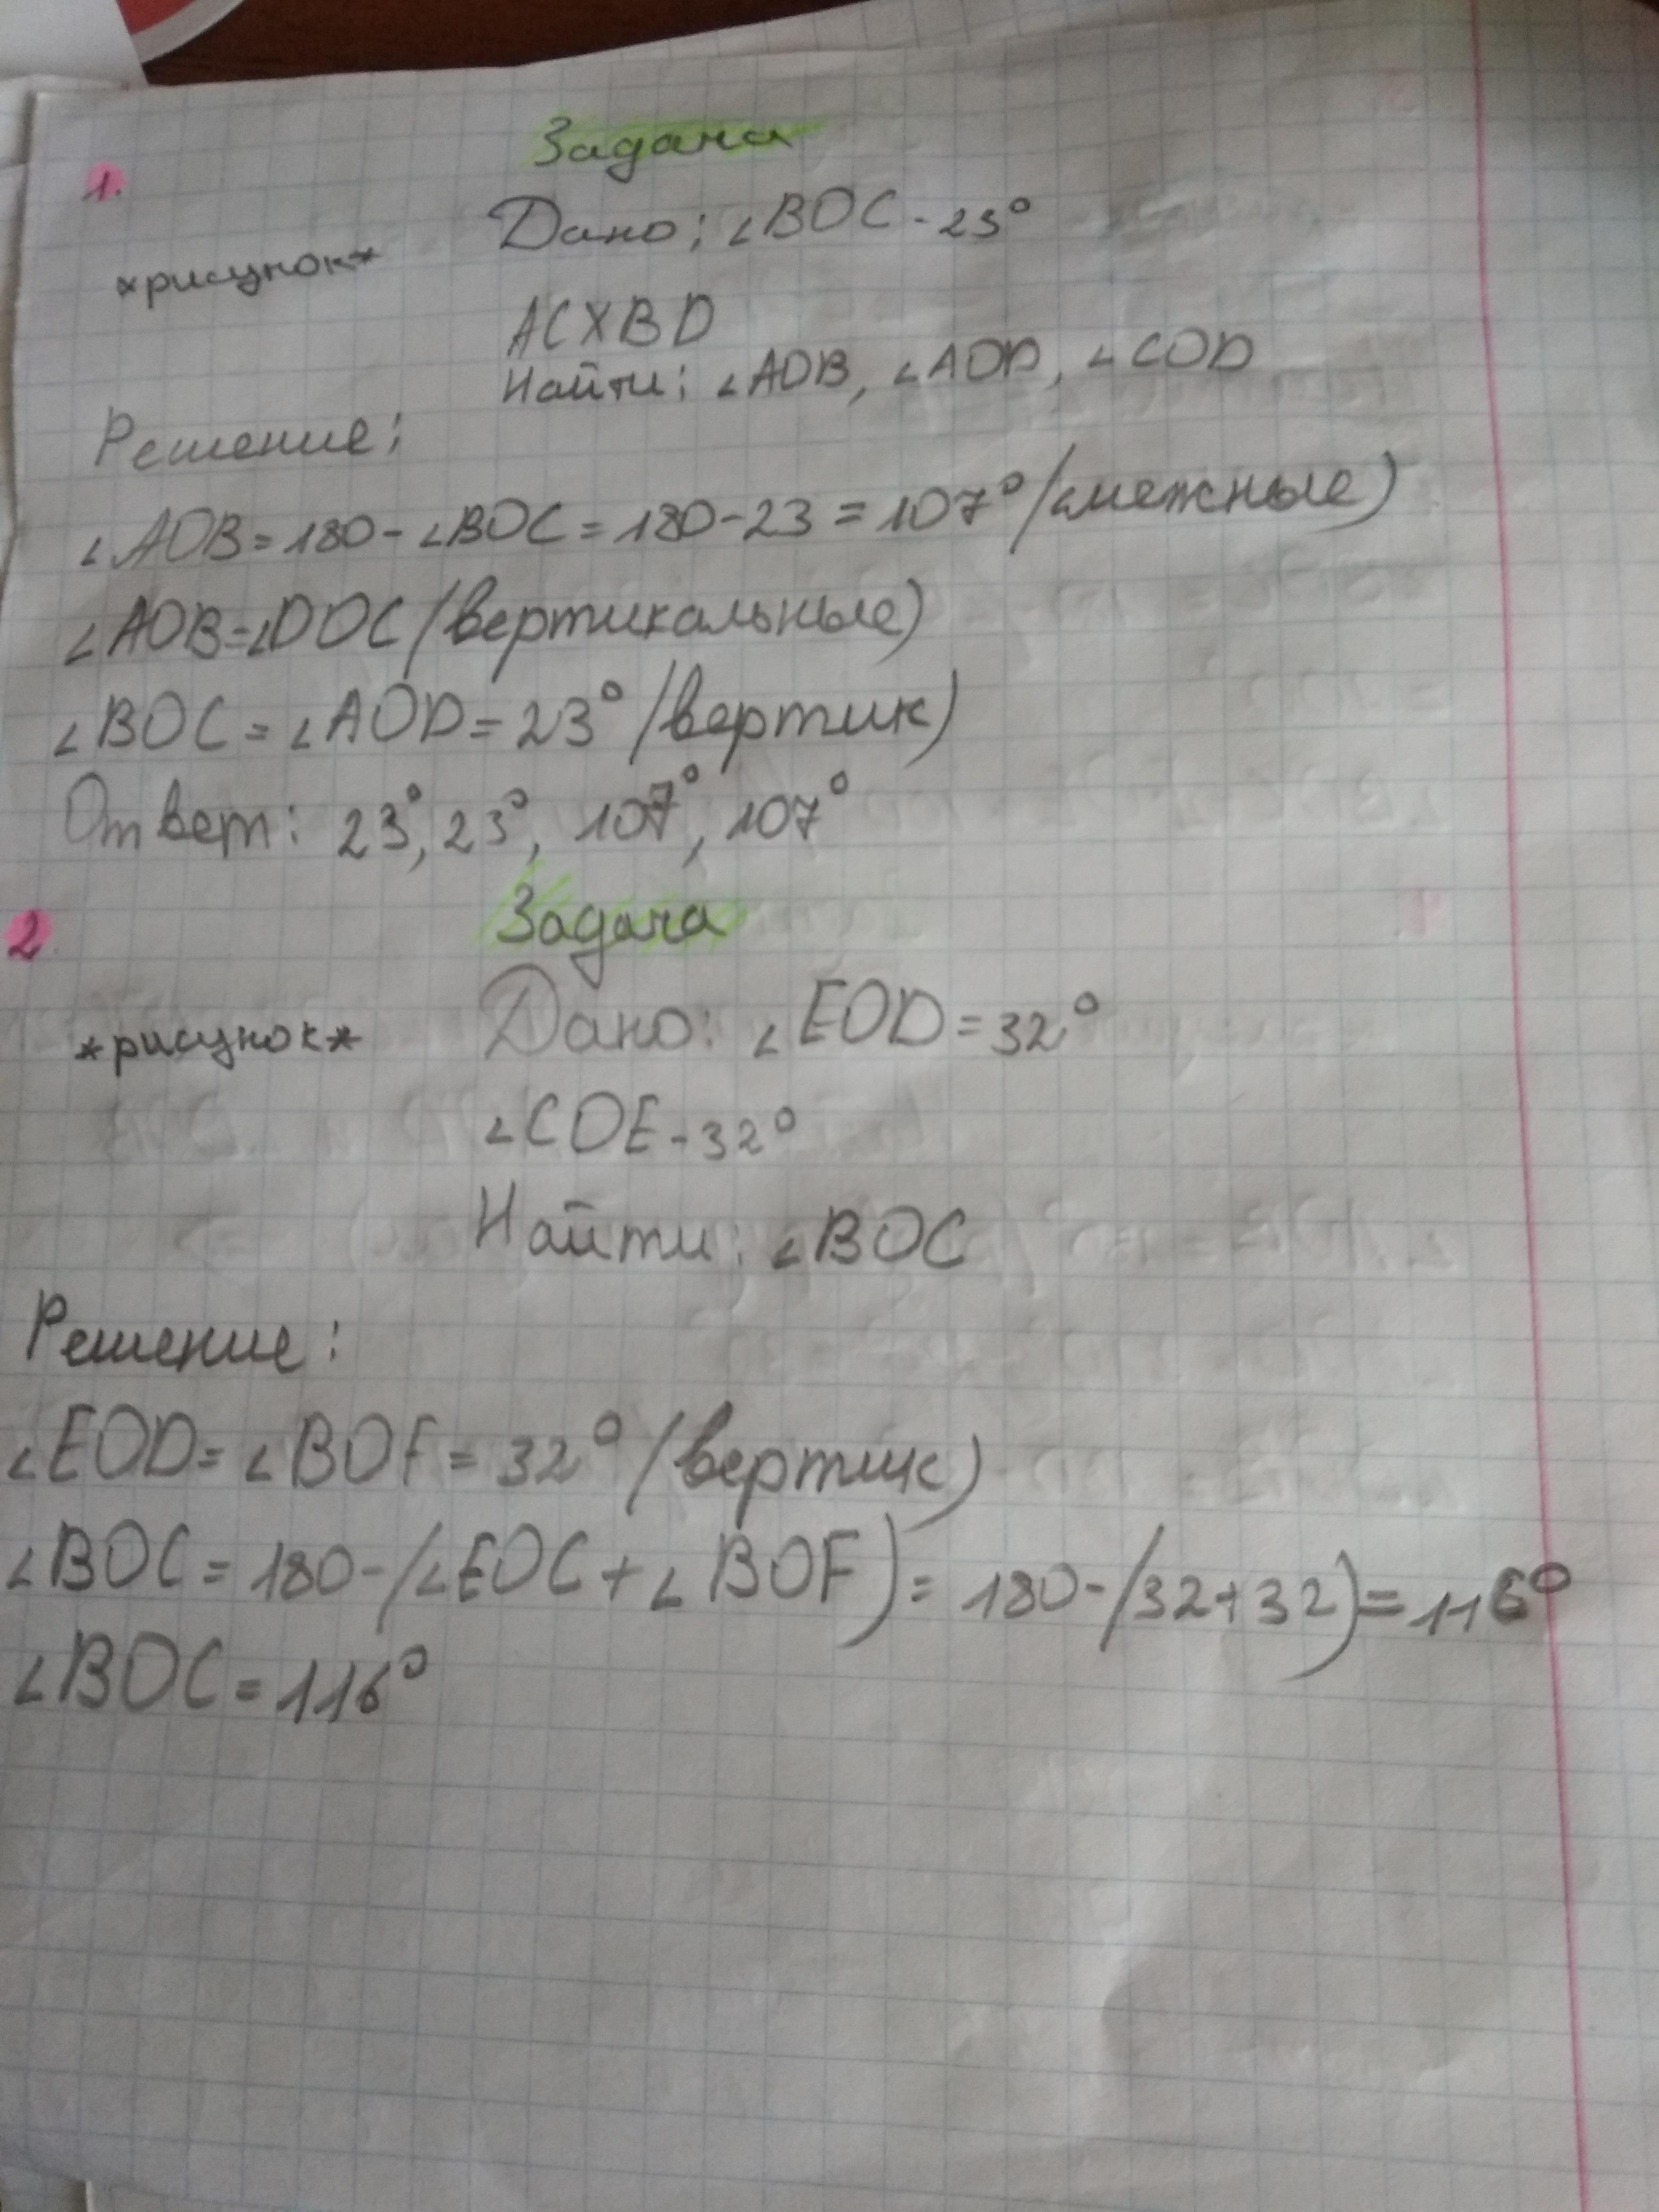 Задача
1.
Дано: ∠BOC - 23°
*рисунок*
ACXBD
Найти: ∠AOB, ∠AOD, ∠COD
Решение:
∠AOB = 180 - ∠BOC = 180 - 23 = 107° (смежные)
∠AOB = ∠DOC (вертикальные)
∠BOC = ∠AOD = 23° (вертик)
Ответ: 23°, 23°, 107°, 107°
Задача
2
*рисунок*
Дано: ∠EOD = 32°
∠COE - 32°
Найти: ∠BOC
Решение:
∠EOD = ∠BOF = 32° (вертик)
∠BOC = 180 - (∠EOC + ∠BOF) = 180 - (32 + 32) = 116°
∠BOC = 116°